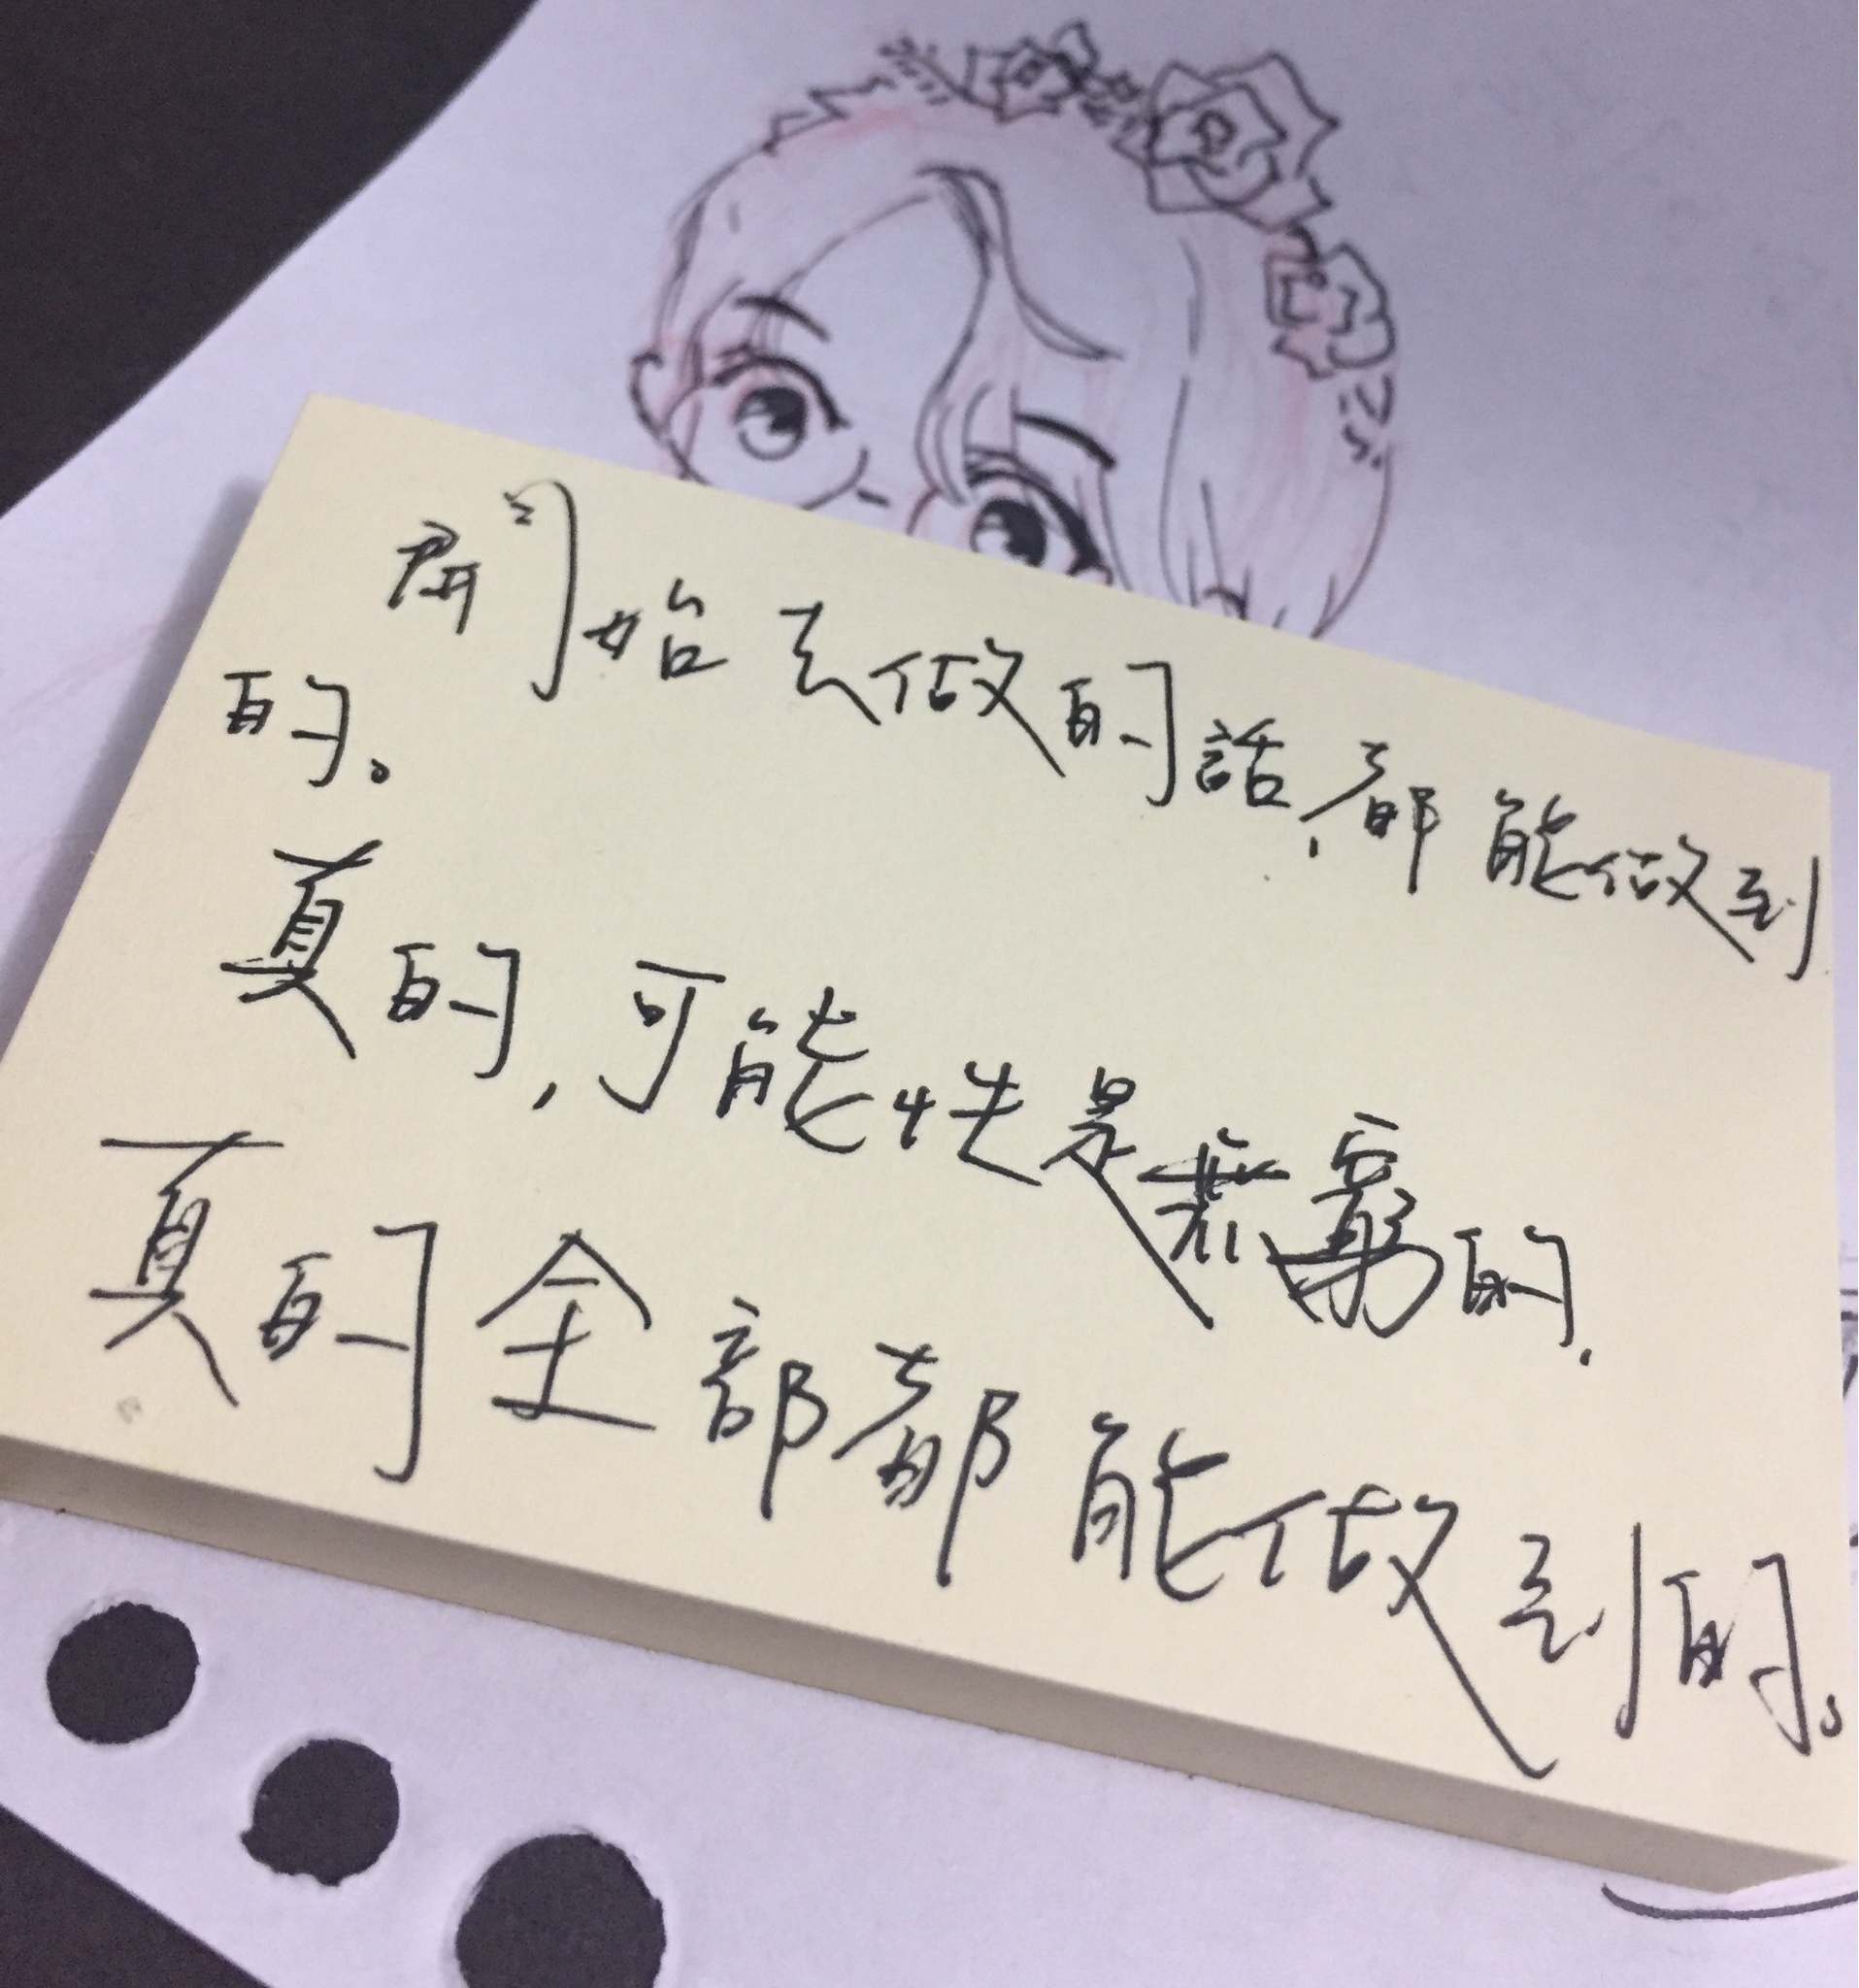 開始去做的話,都能做到
的。
真的,可能性是無窮的.
真的全部都能做到的。